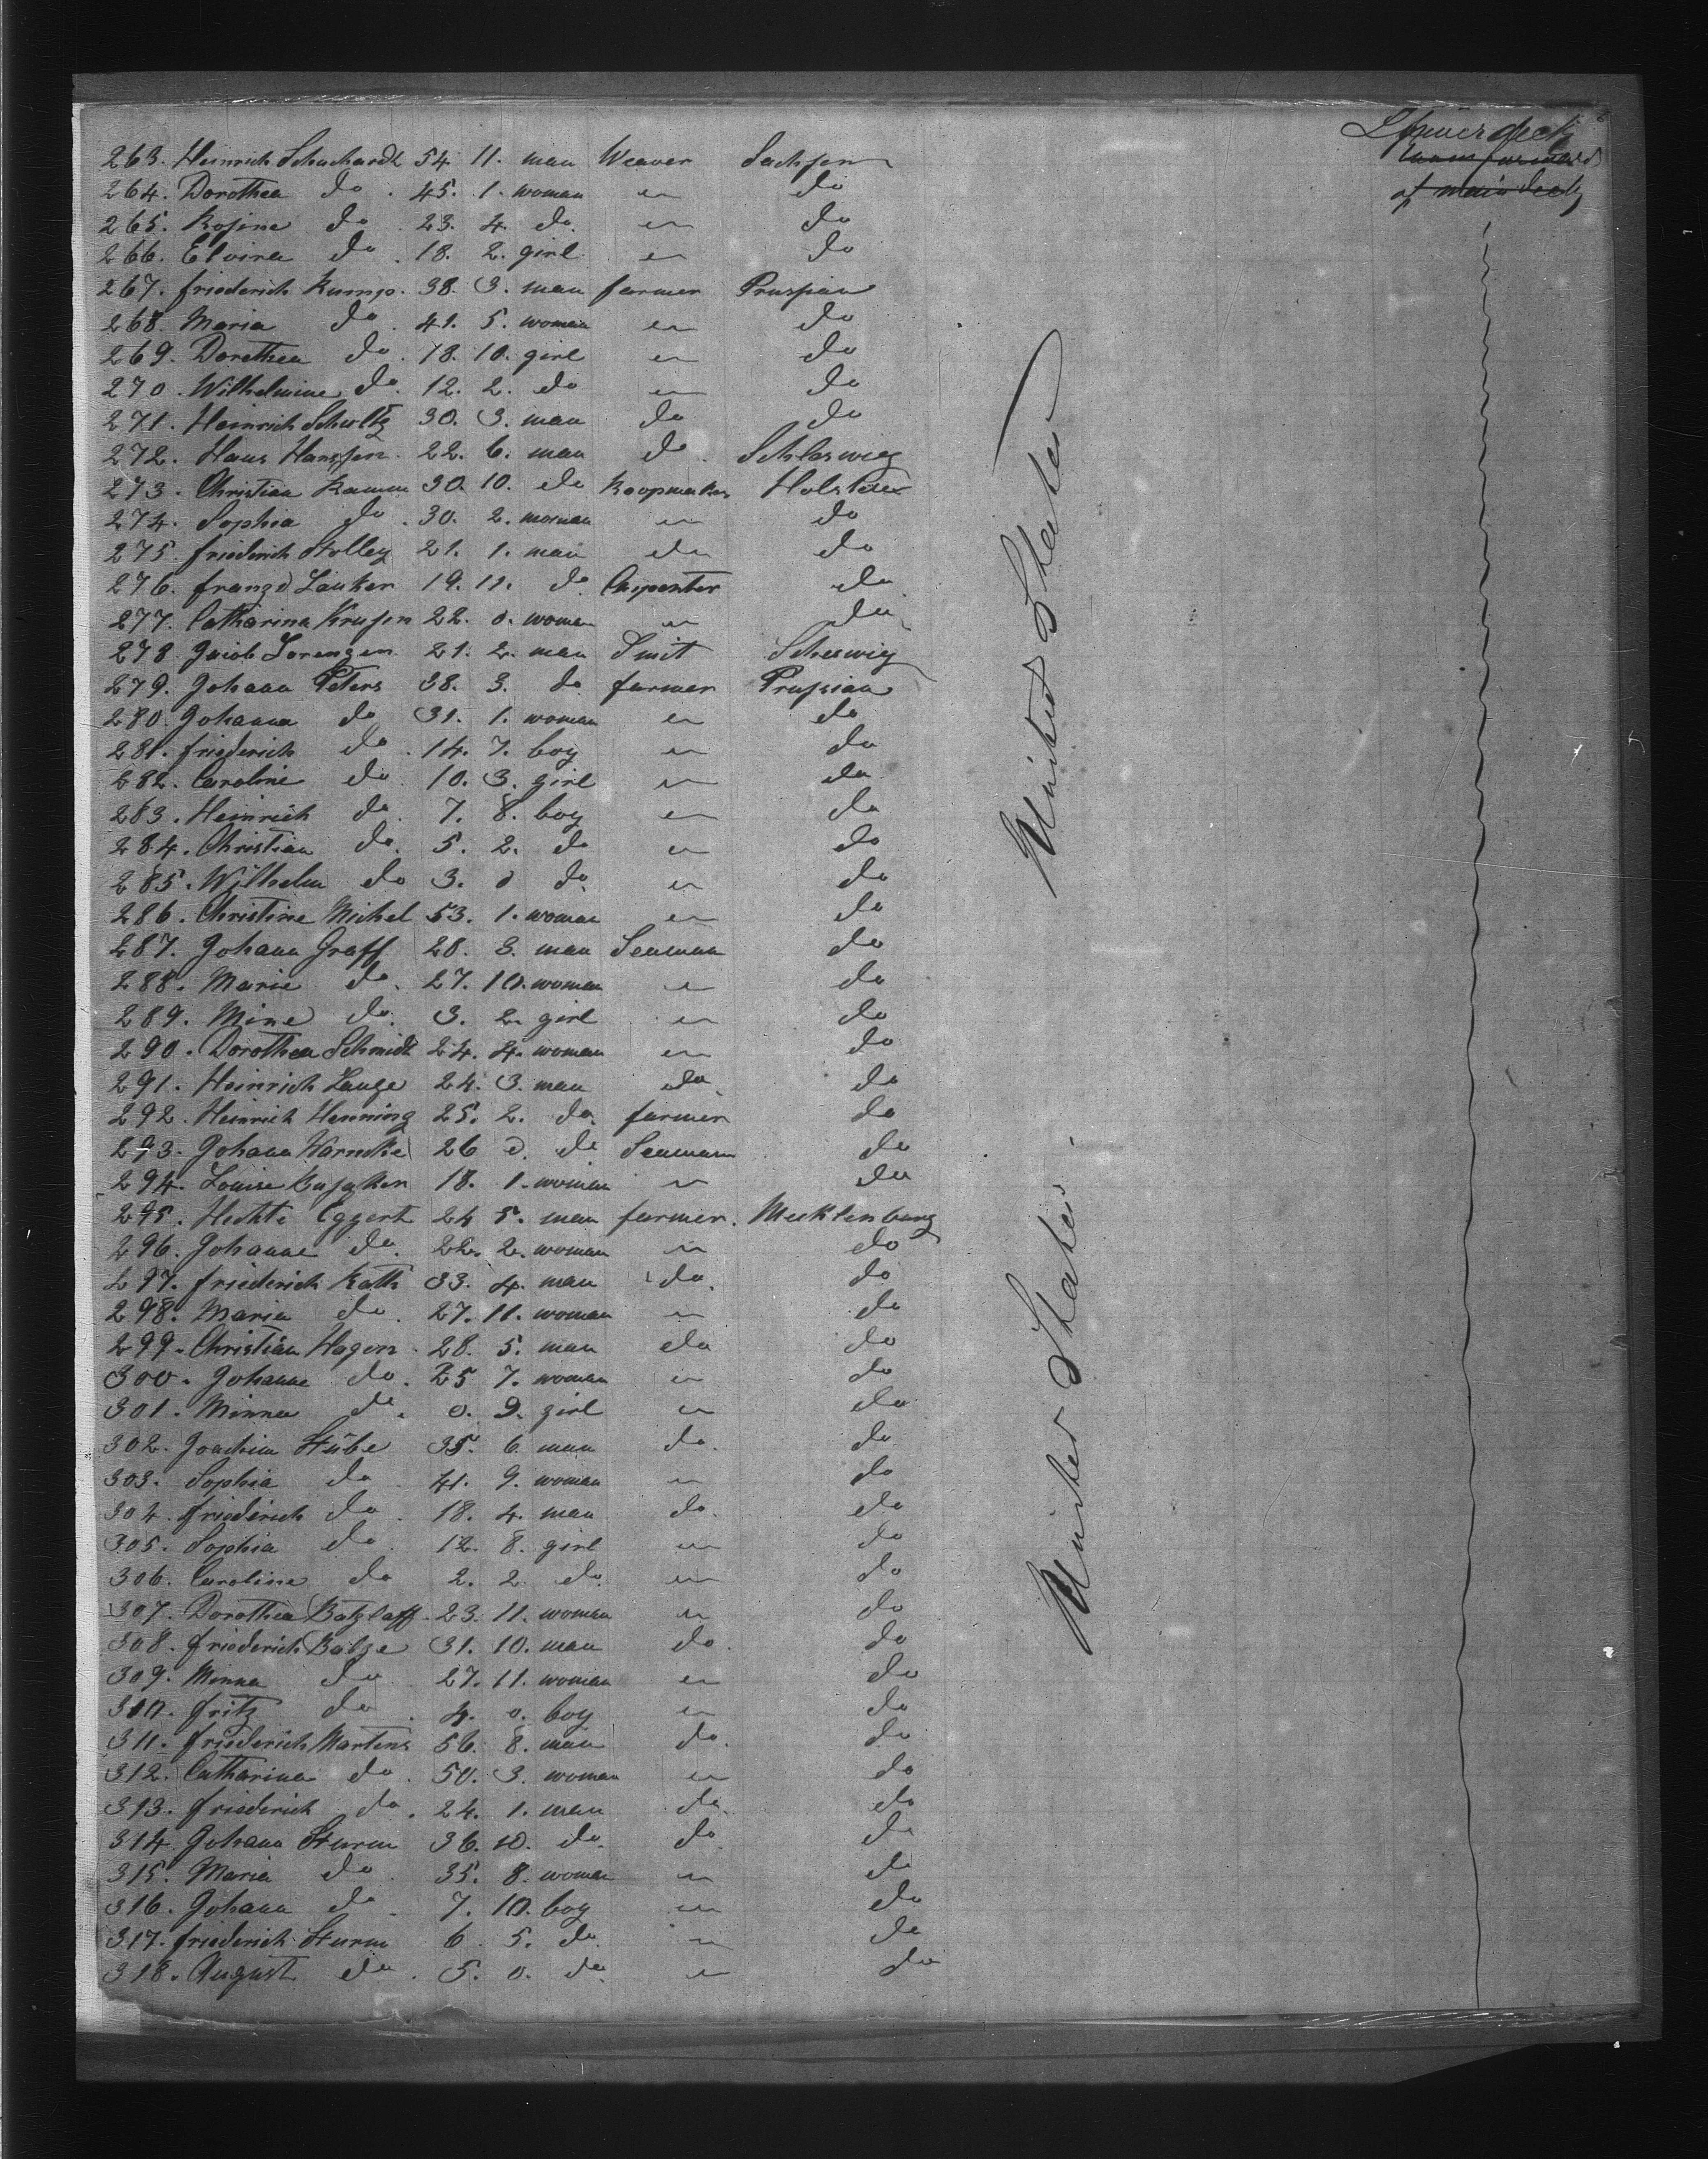 Lower deck
room forward
of main deck
263. Heinrich Schuchardt 54 11. man Weaver Sachsen
264. Dorothea do. 45. 1. woman " do
265. Rosine do. 23. 4. do. " do
266. Elvira do. 18. 2. girl " do
267. friederich Rump. 38. 3. man farmer Prussian
268. Maria do. 41. 5. woman " do
269. Dorothea do. 18. 10. girl " do
270. Wilhelmine do. 12. 2. do " do
271. Heinrich Schultz 30. 3. man do do
272. Hans Hanssen. 22. 6. man do. Schleswig
273. Christian Kamm 30. 10. do Holstein
274. Sophia do. 30. 2. woman " do
275. friederich Stolley 21. 1. man do do
276. franz Lauker 19. 11. do. Carpenter do.
277. Catharina Krusen 22. 0. woman " do
278. Jacob Lorenzen 21. 2. man Smit Scheswig
279. Johann Peters 38. 3. do farmer Prussian
280. Johanna do 31. 1. woman " do
281. friederich do. 14. 7. boy " do
282. Caroline do. 10. 3. girl " do
283. Heinrich do. 7. 8. boy " do
284. Christian do. 5. 2. do " do
285. Wilhelm do 3. 0 do. " do
286. Christine Michel 53. 1. woman " do
287. Johann Graff 28. 3. man Seaman do
288. Marie do. 27. 10. woman " do
289. Mine do. 3. 2. girl " do
290. Dorothea Schmidt 24. 4. woman " do
291. Heinrich Lange 24. 3. man do. do
292. Heinrich Henning 25. 2. do. farmer do
293. Johann Warncke 26 0. do Seaman do
294. Louise 18. 1. woman " do
295. Eggert 24 5. man farmer. Mecklenburg
296. Johanne do. 22. 2. woman " do
297. friederich Rath 33. 4. man do. do
298. Maria do. 27. 11. woman " do
299. Christian Hagen. 28. 5. man do do
300. Johanne do. 25 7. woman " do
301. Minna do. 0. 9. girl " do
302. Joachim Stübe 35. 6. man do. do
303. Sophia do 41. 9. woman " do
304. friederich do. 18. 4. man do. do
305. Sophia do. 12. 8. girl " do
306. Caroline do 2. 2. do. " do
307. Dorothea Batzlaff. 23. 11. woman " do
308. friederich Bolze 31. 10. man do. do
309. Minna do. 27. 11. woman " do
310. fritz do. 4. 0. boy " do
311. friederich Martens 56. 8. man do. do
312. Catharina do. 50. 3. woman " do
313. friederich do. 24. 1. man do. do
314. Johann Sturm 36. 10. do. do. do
315. Maria do. 35. 8. woman " do
316. Johann do. 7. 10. boy " do
317. friederich Sturm 6. 5. do. " do
318. August do. 5. 0. do. " do
United States
United States